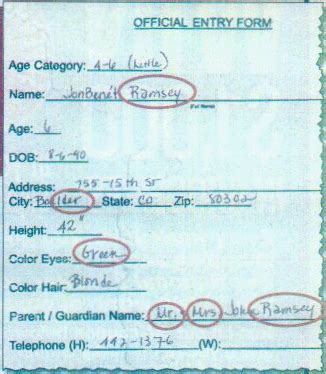 OFFICIAL ENTRY FORM
Age Category: 4-6 (Little)
Name: JonBenét Ramsey
Age: 6
DOB: 8-6-90
Address: 755-15th St
City: Boulder State: CO Zip: 80302
Height: 42"
Color Eyes: Green
Color Hair: Blonde
Parent / Guardian Name: Mr. Mrs John Ramsey
Telephone (H): 442-1376 (W):